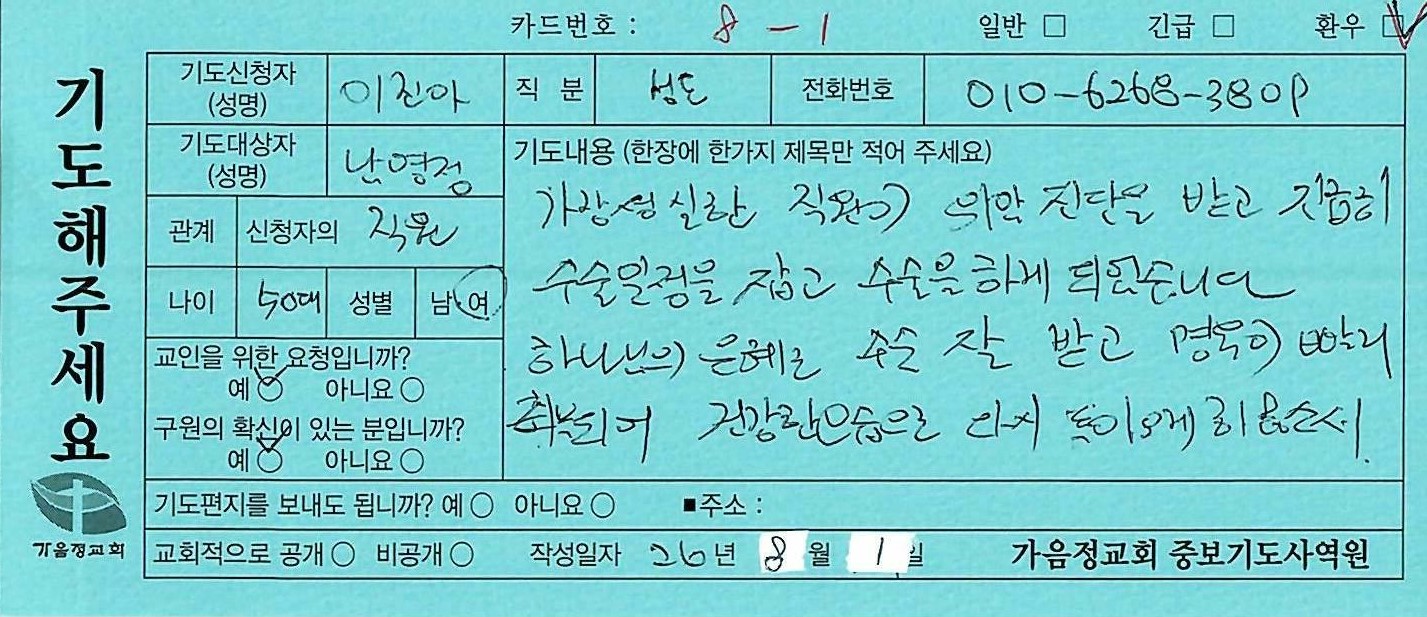 카드번호 : 8 - 1 일반 □ 긴급 □ 환우 □
기도해주세요
가음정교회
기도신청자 (성명) 이진아 직 분 성도 전화번호 010-6268-380
기도대상자 (성명) 남영정
관계 신청자의 직원
나이 50대 성별 남 여
교인을 위한 요청입니까?
예 ○ 아니요 ○
구원의 확신이 있는 분입니까?
예 ○ 아니요 ○
기도내용 (한장에 한가지 제목만 적어 주세요)
가장 성실한 직원이 위암 진단을 받고 지급히
수술일정을 잡고 수술을 하게 되었습니다
하나님의 은혜로 수술 잘 받고 명옥이 빨리
회복되어 건강한모습으로 다시 하옵소서
기도편지를 보내도 됩니까? 예 ○ 아니요 ○ ■주소 :
교회적으로 공개 ○ 비공개 ○ 작성일자 26 년 8 월 1 일 가음정교회 중보기도사역원